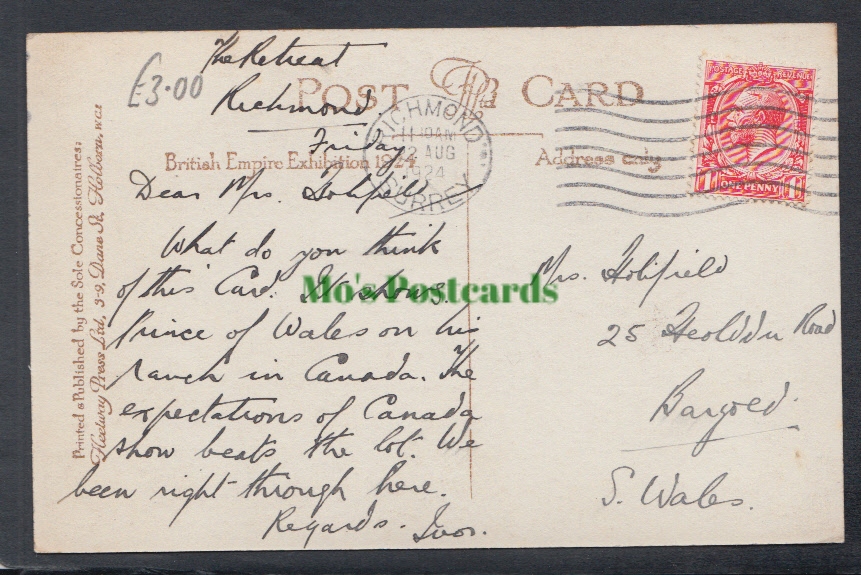 £3.00
The Retreat
Richmond
Friday
POST CARD
British Empire Exhibition 1924
Address only
RICHMOND
11 10AM
2 AUG
1924
SURREY
POSTAGE REVENUE
ONE PENNY
Printed & Published by the Sole Concessionaires:
Fleetway Press Ltd., 3-9, Dane St. Holborn, W.C.1
Dear Mrs. Hohfield
What do you think
of this Card. It shows
Prince of Wales on his
ranch in Canada. The
expectations of Canada
show beats the lot. We
been right through here.
Regards. Ivor.
Mo's Postcards
Mrs. Hohfield
25 Heolddu Road
Bargoed
S. Wales.